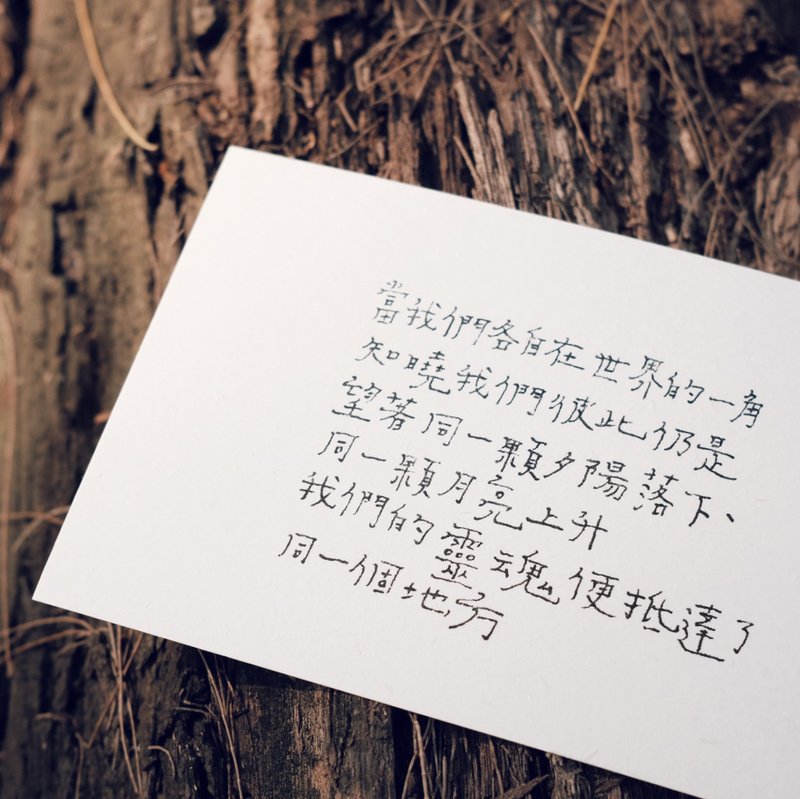 當我們各自在世界的一角
知曉我們彼此仍是
望著同一顆夕陽落下、
同一顆月亮上升
我們的靈魂便抵達了
同一個地方